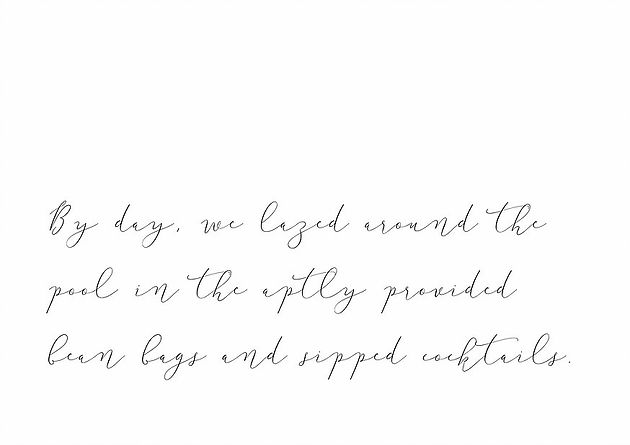 By day, we lazed around the
pool in the aptly provided
bean bags and sipped cocktails.